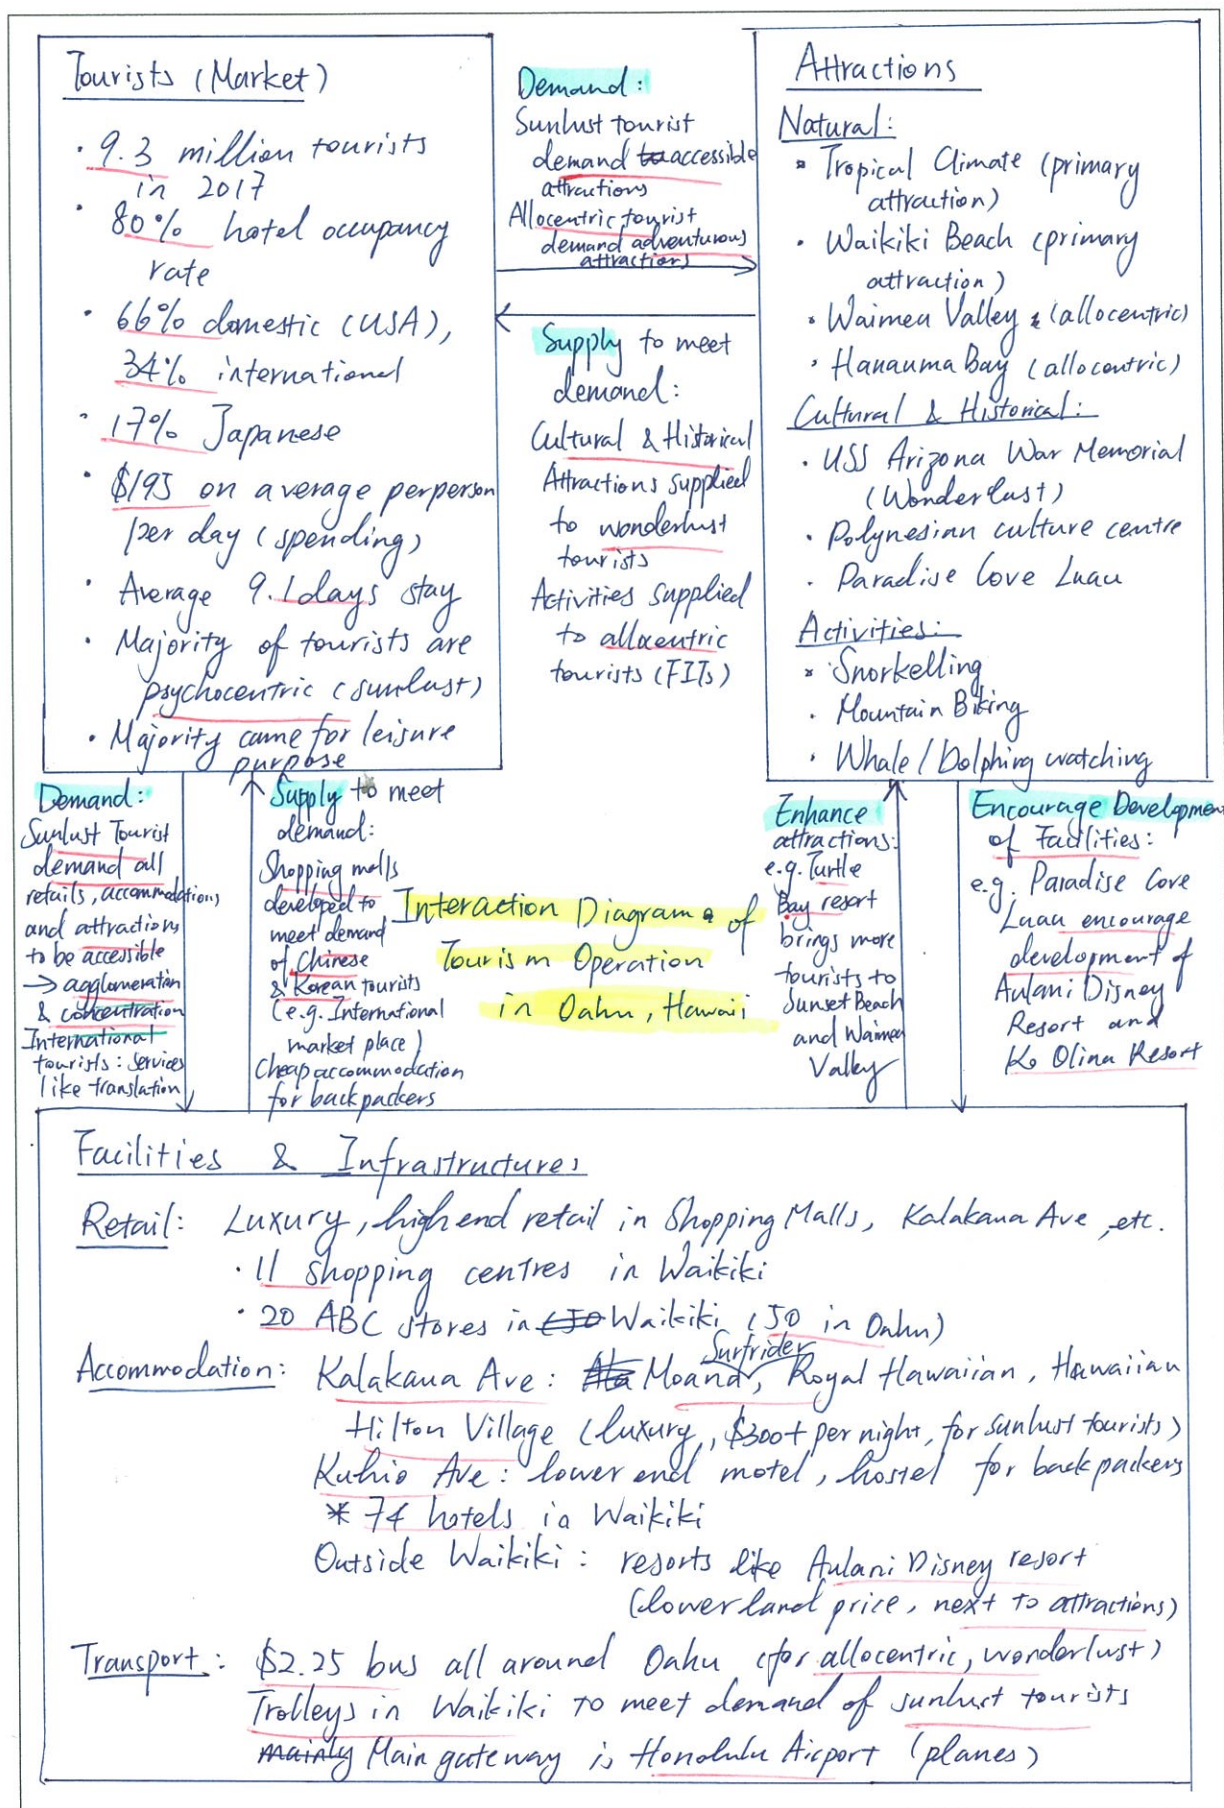 Tourists (Market)
· 9.3 million tourists
in 2017
· 80% hotel occupancy
rate
· 66% domestic (USA),
34% international
· 17% Japanese
· $195 on average perperson
per day (spending)
· Average 9.1days stay
· Majority of tourists are
psychocentric (sunlust)
· Majority came for leisure
purpose
Demand:
Sunlust tourist
demand to accessible
attractions
Allocentric tourist
demand adventurous
attractions
Supply to meet
demand:
Cultural & Historical
Attractions supplied
to wonderlust
tourists
Activities supplied
to allocentric
tourists (FITs)
Attractions
Natural:
· Tropical Climate (primary
attraction)
· Waikiki Beach (primary
attraction)
· Waimea Valley (allocentric)
· Hanauma Bay (allocentric)
Cultural & Historical:
· USS Arizona War Memorial
(Wonderlust)
· Polynesian culture centre
· Paradise Cove Luau
Activities:
· Snorkelling
· Mountain Biking
· Whale/Dolphing watching
Demand:
Sunlust Tourist
demand all
retails, accommodations
and attractions
to be accessible
→ agglomeration
& concentration
International
tourists: services
like translation
Supply to meet
demand:
Shopping malls
developed to
meet demand
of Chinese
& Korean tourists
(e.g. International
market place)
Cheap accommodation
for backpackers
Interaction Diagram of
Tourism Operation
in Oahu, Hawaii
Enhance
attractions:
e.g. Turtle
Bay resort
brings more
tourists to
Sunset Beach
and Waimea
Valley
Encourage Development
of Facilities:
e.g. Paradise Cove
Luau encourage
development of
Aulani Disney
Resort and
Ko Olina Resort
Facilities & Infrastructures
Retail: Luxury, high end retail in Shopping Malls, Kalakaua Ave, etc.
· 11 shopping centres in Waikiki
· 20 ABC stores in (50 Waikiki (50 in Oahu)
Accommodation: Kalakaua Ave: Moana Surfrider, Royal Hawaiian, Hawaiian
Hilton Village (luxury, $300+ per night, for sunlust tourists)
Kuhio Ave: lower end motel, hostel for backpackers
* 74 hotels in Waikiki
Outside Waikiki: resorts like Aulani Disney resort
(lower land price, next to attractions)
Transport: $2.25 bus all around Oahu (for allocentric, wonderlust)
Trolleys in Waikiki to meet demand of sunlust tourists
mainly Main gateway is Honolulu Airport (planes)